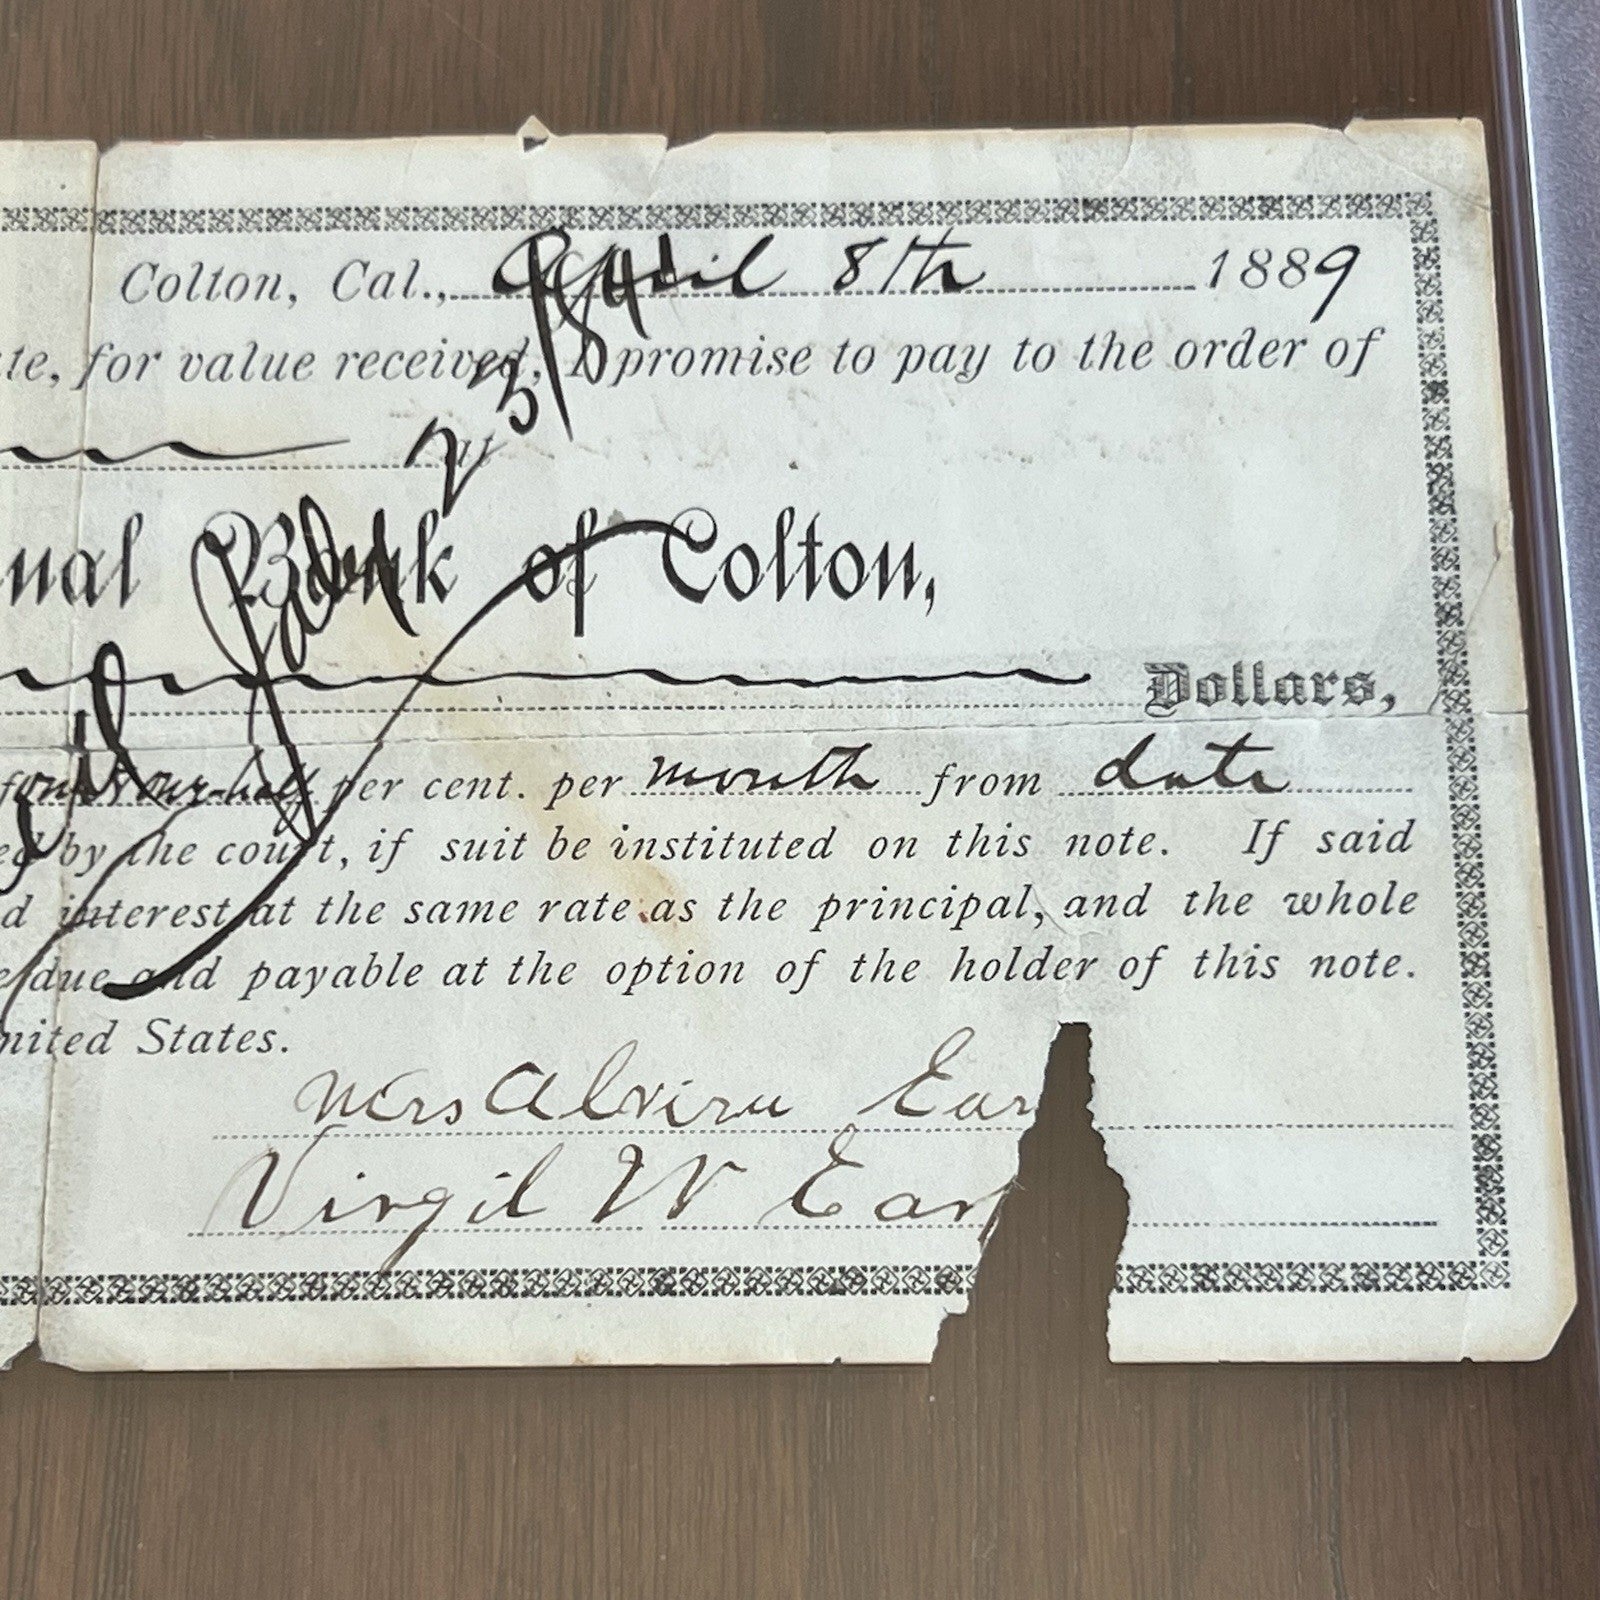 Colton, Cal., April 8th 1889
te, for value received, I promise to pay to the order of
at
nal Bank of Colton,
Dollars,
one-half per cent. per month from date
ed by the court, if suit be instituted on this note. If said
d interest at the same rate as the principal, and the whole
e due and payable at the option of the holder of this note.
nited States.
Mrs Alvira Ear
Virgil W Earp
Paid
23/89